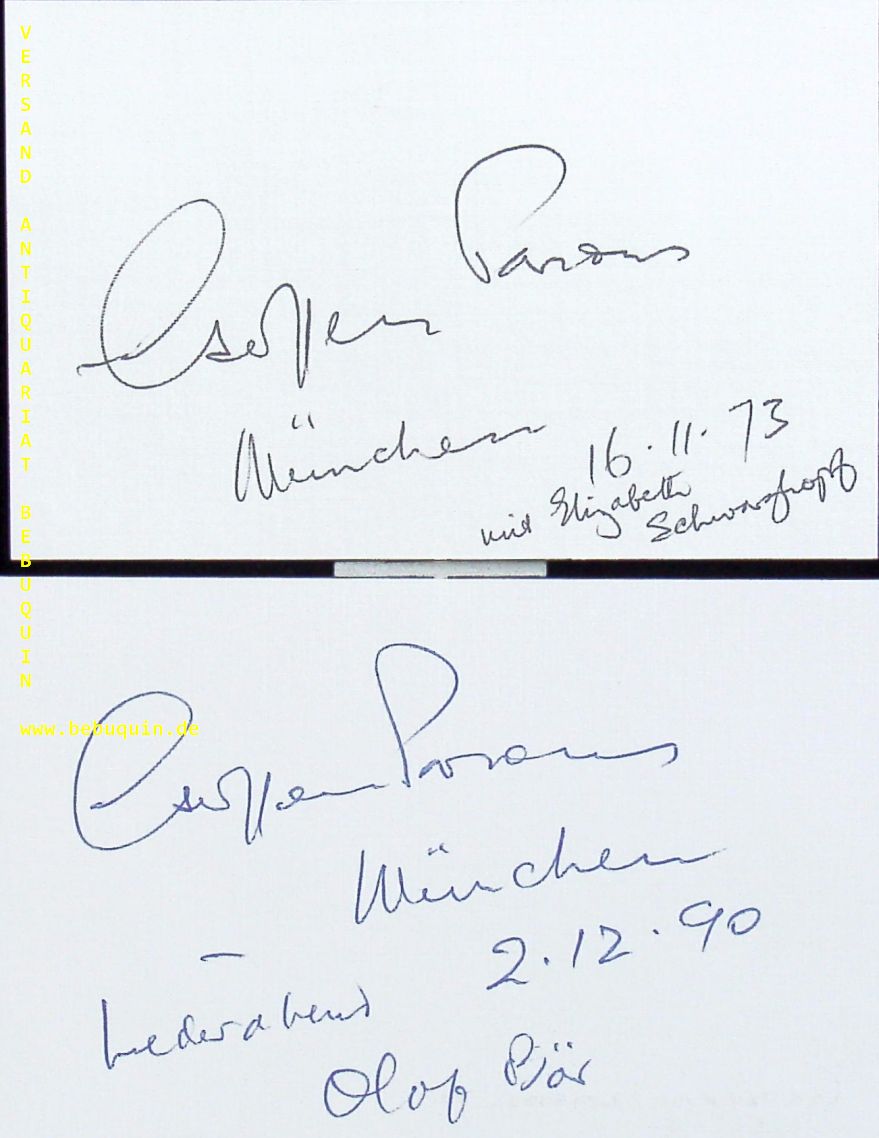 VERSAND ANTIQUARIAT BEBUQUIN
www.bebuquin.de
Geoffrey Parsons
München
16.11.73
mit Elizabeth
Schwarzkopf
Geoffrey Parsons
München
2.12.90
Liederabend
Olaf Bjär